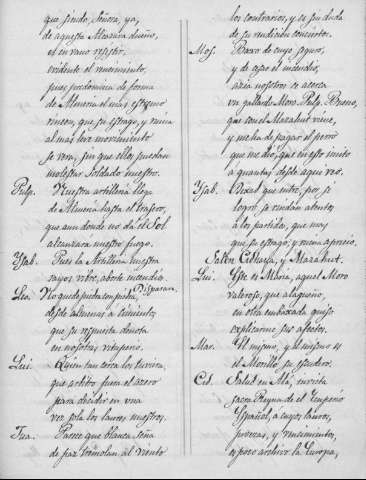 que siendo, Señora, ya,
de aquesta Alcazava dueño,
es en vano resistir,
evidente el vencimiento,
pues predomina de forma
de Almeria el mas extremo
rincon, que su estrago, y ruina
al mas leve movimiento
se vera, sin que ellos puedan
molestar Soldado nuestro.
Pulg. Nuestra artilleria llega
de Almeria hasta el trasero,
que aun donde no da el Sol
alcanzara nuestro fuego.
Ysab. Pues la Artilleria nuestra
rayos vibre, aborte incendios.
Disparan.
Lea. No quede piedra con piedra,
desde almenas a cimientos
que su respuesta denota
en nosotros vituperio.
Lui. Quien tan cerca los tuviera
que arbitro fuera el acero
para decidir en una
vez sola los lauros nuestros.
Fea. Parece que blanca seña
de paz tremolan al viento
los contrarios, y es sin duda
de su rendicion conciertos.
Mos.
y de cesar el incendio,
azia nosotros se acerca
un gallardo Moro. Pulg. Bueno,
que con el Marabut viene,
y me ha de pagar el perro
que me dio, que en esto imito
a quantos desde aqui veo.
Ysab. Dexad que entre, por si
logro se rindan atentos
a los partidos, que muy
su estrago, y ruina aprecio.
Salen y Marabut.
Lui. Este es Maria, aquel Moro
valeroso, que alagueño,
en otra embaxada quiso
explicarme sus afectos.
Mar. El mismo, y el mismo es
el Morillo, su escudero.
Cid. Salud en Alá, invicta
sacra Reyna de el Imperio
Español, a cuyos lauros,
proezas, y vencimientos,
es poco archivo la Europa,